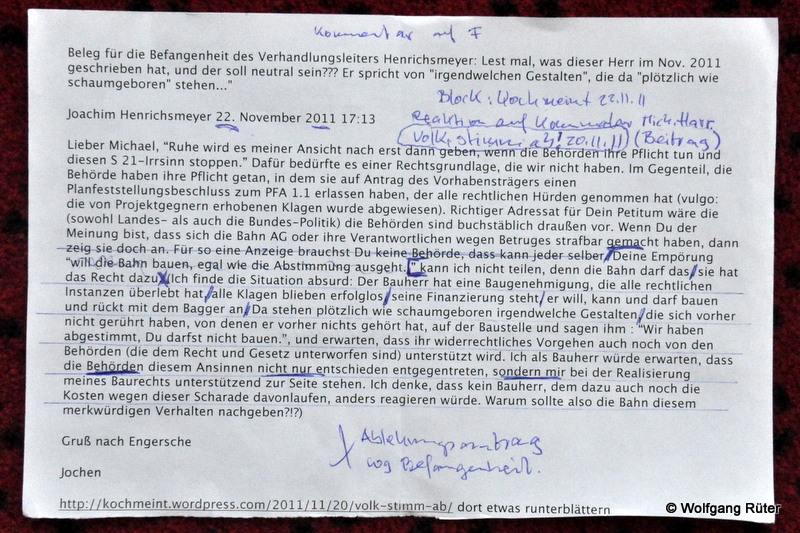 Kommentar auf F
Beleg für die Befangenheit des Verhandlungsleiters Henrichsmeyer: Lest mal, was dieser Herr im Nov. 2011
geschrieben hat, und der soll neutral sein??? Er spricht von "irgendwelchen Gestalten", die da "plötzlich wie
schaumgeboren" stehen..."
Block: Kochmeint 22.11.11
Joachim Henrichsmeyer 22. November 2011 17:13
Reaktion auf Kommentar Mich. Harr.
(Volk stimm ab! 20.11.11) (Beitrag)
Lieber Michael, "Ruhe wird es meiner Ansicht nach erst dann geben, wenn die Behörden ihre Pflicht tun und
diesen S 21-Irrsinn stoppen." Dafür bedürfte es einer Rechtsgrundlage, die wir nicht haben. Im Gegenteil, die
Behörde haben ihre Pflicht getan, in dem sie auf Antrag des Vorhabensträgers einen
Planfeststellungsbeschluss zum PFA 1.1 erlassen haben, der alle rechtlichen Hürden genommen hat (vulgo:
die von Projektgegnern erhobenen Klagen wurde abgewiesen). Richtiger Adressat für Dein Petitum wäre die
(sowohl Landes- als auch die Bundes-Politik) die Behörden sind buchstäblich draußen vor. Wenn Du der
Meinung bist, dass sich die Bahn AG oder ihre Verantwortlichen wegen Betruges strafbar gemacht haben, dann
zeig sie doch an. Für so eine Anzeige brauchst Du keine Behörde, dass kann jeder selber/ Deine Empörung
"will die Bahn bauen, egal wie die Abstimmung ausgeht." kann ich nicht teilen, denn die Bahn darf das/ sie hat
das Recht dazu. Ich finde die Situation absurd: Der Bauherr hat eine Baugenehmigung, die alle rechtlichen
Instanzen überlebt hat/ alle Klagen blieben erfolglos/ seine Finanzierung steht/ er will, kann und darf bauen
und rückt mit dem Bagger an/ Da stehen plötzlich wie schaumgeboren irgendwelche Gestalten/ die sich vorher
nicht gerührt haben, von denen er vorher nichts gehört hat, auf der Baustelle und sagen ihm : "Wir haben
abgestimmt, Du darfst nicht bauen.", und erwarten, dass ihr widerrechtliches Vorgehen auch noch von den
Behörden (die dem Recht und Gesetz unterworfen sind) unterstützt wird. Ich als Bauherr würde erwarten, dass
die Behörden diesem Ansinnen nicht nur entschieden entgegentreten, sondern mir bei der Realisierung
meines Baurechts unterstützend zur Seite stehen. Ich denke, dass kein Bauherr, dem dazu auch noch die
Kosten wegen dieser Scharade davonlaufen, anders reagieren würde. Warum sollte also die Bahn diesem
merkwürdigen Verhalten nachgeben?!?)
Gruß nach Engersche
Ablehnungsantrag
wg Befangenheit.
Jochen
http://kochmeint.wordpress.com/2011/11/20/volk-stimm-ab/ dort etwas runterblättern
© Wolfgang Rüter